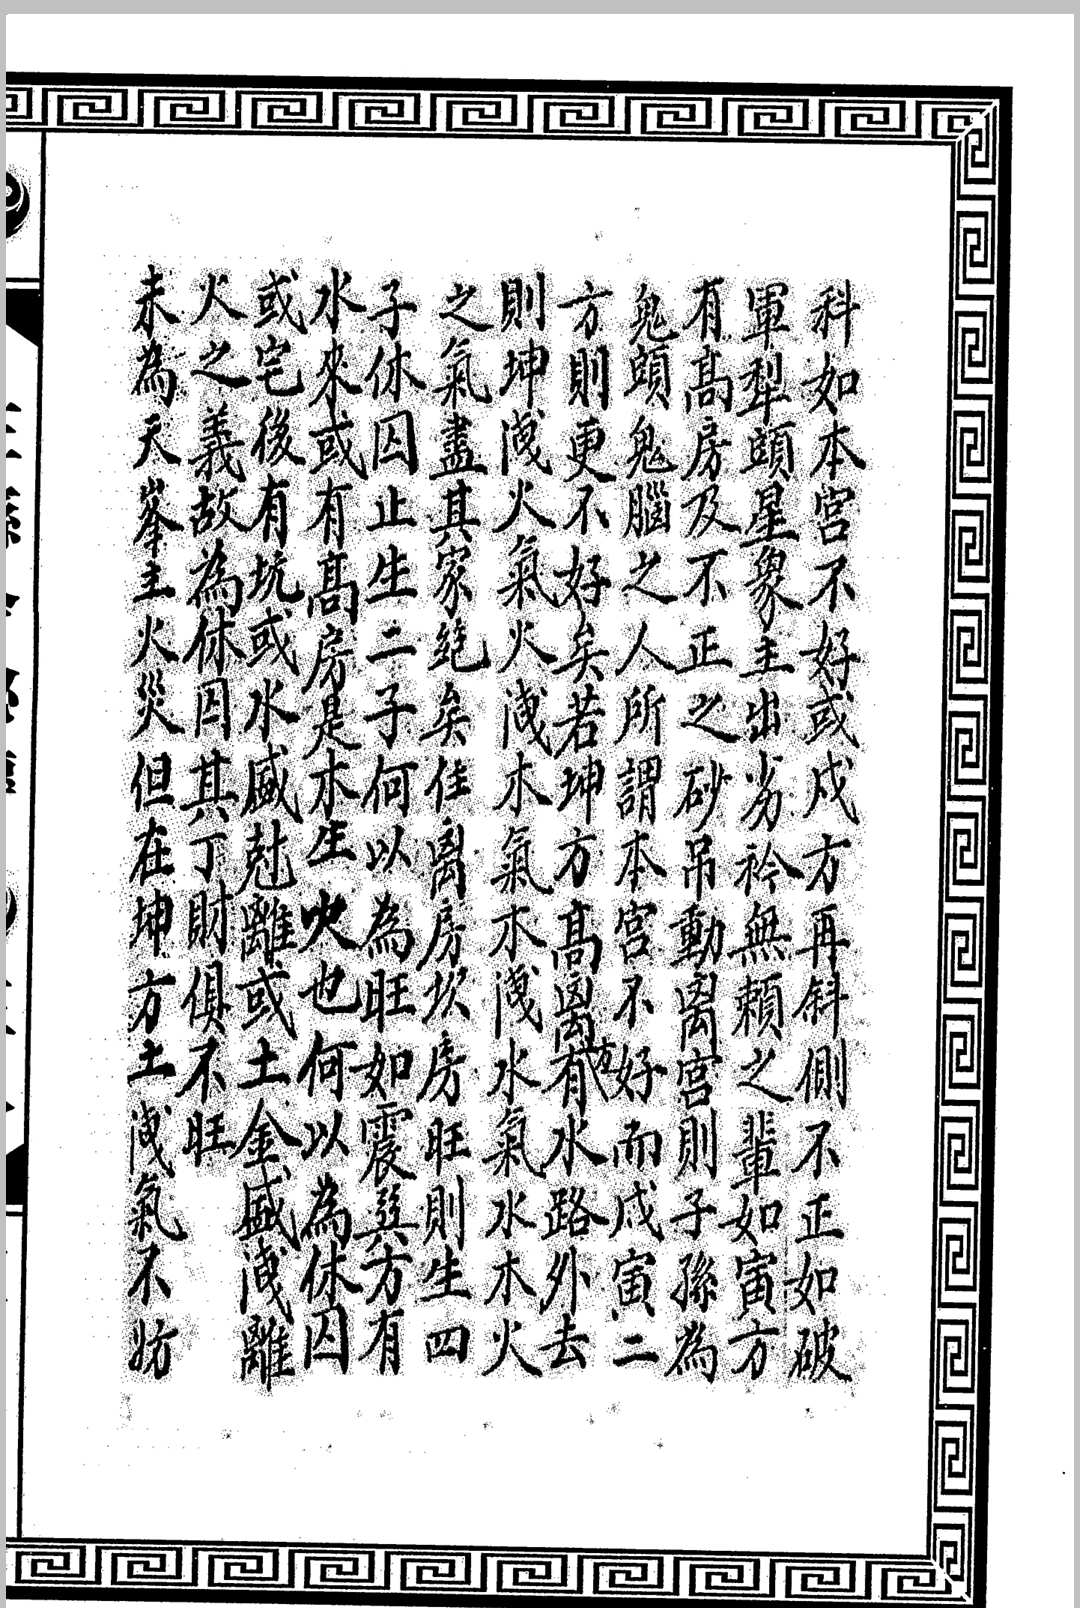 科如本宮不好或戍方再斜側不正如破
軍犁頭星象主出劣衿無賴之輩如寅方
有高房及不正之砂吊動离宮則子孫為
鬼頭鬼腦之人所謂本宮不好而戍寅二
方則更不好矣若坤方高离有水路外去
則坤洩火氣火洩木氣木洩水氣水木火
之氣盡其家絕矣住离房坎房旺則生四
子休囚止生二子何以為旺如震巽方有
水來或有高房是木生火也何以為休囚
或宅後有坑或水盛尅離或土金盛洩離
火之義故為休囚其丁財俱不旺
未為天峯主火災但在坤方土洩氣不妨